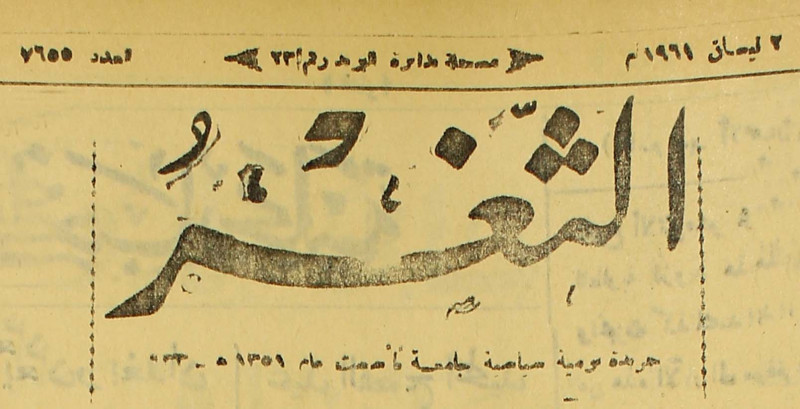 ٢ نيسان ١٩٦١م مسجلة بدائرة البريد رقم/٢٣ العدد ٧٦٥٥
الثَّغْرُ
جريدة يومية سياسية جامعة تأسست عام ١٣٥١ ه -